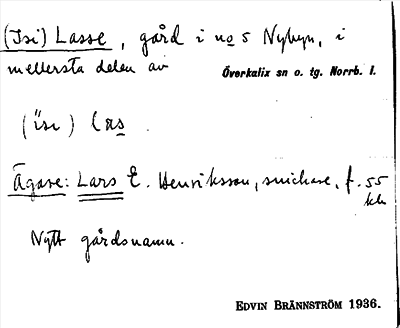 (Isi) Lasse, gård i no 5 Nybyn, i
mellersta delen av Överkalix sn o. tg. Norrb. l.
(ïsi) Las.
Ägare: Lars E. Henriksson, snickare, f. 55
Nytt gårdsnamn.
EDVIN BRÄNNSTRÖM 1936.